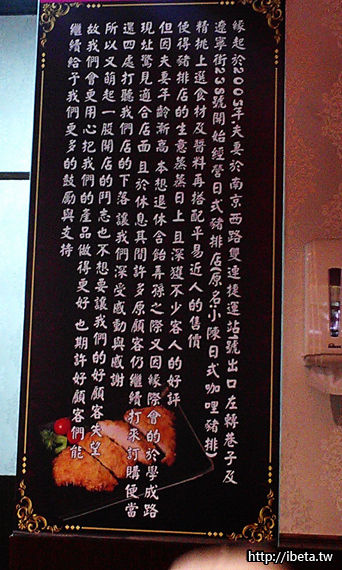 緣起於2005年,夫妻於南京西路雙連捷運站1號出口左轉巷子及
遼寧街238號開始經營日式豬排店(原名:小陳日式咖哩豬排)
精挑上選食材及醬料再搭配平易近人的售價
使得豬排店的生意蒸蒸日上 且深獲不少客人的好評
但因夫妻年齡漸高 本想退休含飴弄孫之際 又因緣際會的於學成路
現址驚見適合店面 且於休息其間許多原顧客仍繼續打來訂購便當
還四處打聽我們店的下落讓我們深受感動與感謝
所以又萌起一股開店的鬥志也不想要讓我們的好顧客失望
故我們會更用心把我們的產品做得更好 也期許好顧客們能
繼續給予我們更多的鼓勵與支持
http://ibeta.tw